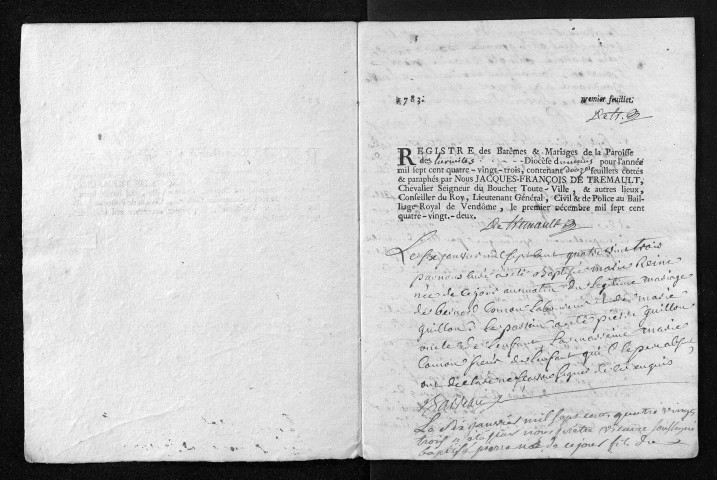 1783.
premier feuillet.
De Tr.
REGISTRE des Batêmes & Mariages de la Paroisse
des Diocèse pour l'année
mil sept cent quatre-vingt-trois, contenant douze feuillets cottés
& paraphés par Nous JACQUES-FRANÇOIS DE TREMAULT,
Chevalier Seigneur du Bouchet Toute-Ville, & autres lieux,
Conseiller du Roy, Lieutenant Général, Civil & de Police au Bail-
liage Royal de Vendôme, le premier décembre mil sept cent
quatre-vingt-deux.
De Tremault
Le janvier mil sept cent quatre vingt trois
par nous curé a été baptisé marie Reine
née de ce jour au matin du légitime mariage
de bernard Comon laboureur et de marie
guillon le parrain a été pierre guillon
oncle de l'enfant la marraine marie
Comon de l'enfant qui le pere absent
ont déclaré ne savoir signer de ce enquis
Le janvier mil sept cent quatre vingt
trois a été par nous vicaire soussigné
baptisé pierre né de ce jour fils de